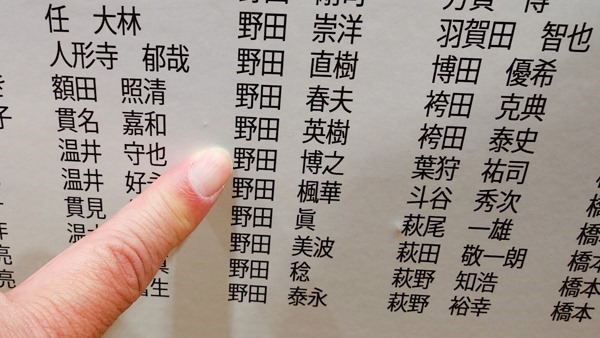 亮
亮
任 大林
人形寺 郁哉
額田 照清
貫名 嘉和
温井 守也
温井 好
貫見
生
野田 崇洋
野田 直樹
野田 春夫
野田 英樹
野田 博之
野田 楓華
野田 眞
野田 美波
野田 稔
野田 泰永
羽賀田 智也
博田 優希
袴田 克典
袴田 泰史
葉狩 祐司
斗谷 秀次
萩尾 一雄
萩田 敬一朗
萩野 知浩
萩野 裕幸
橋
橋本
橋本
橋本